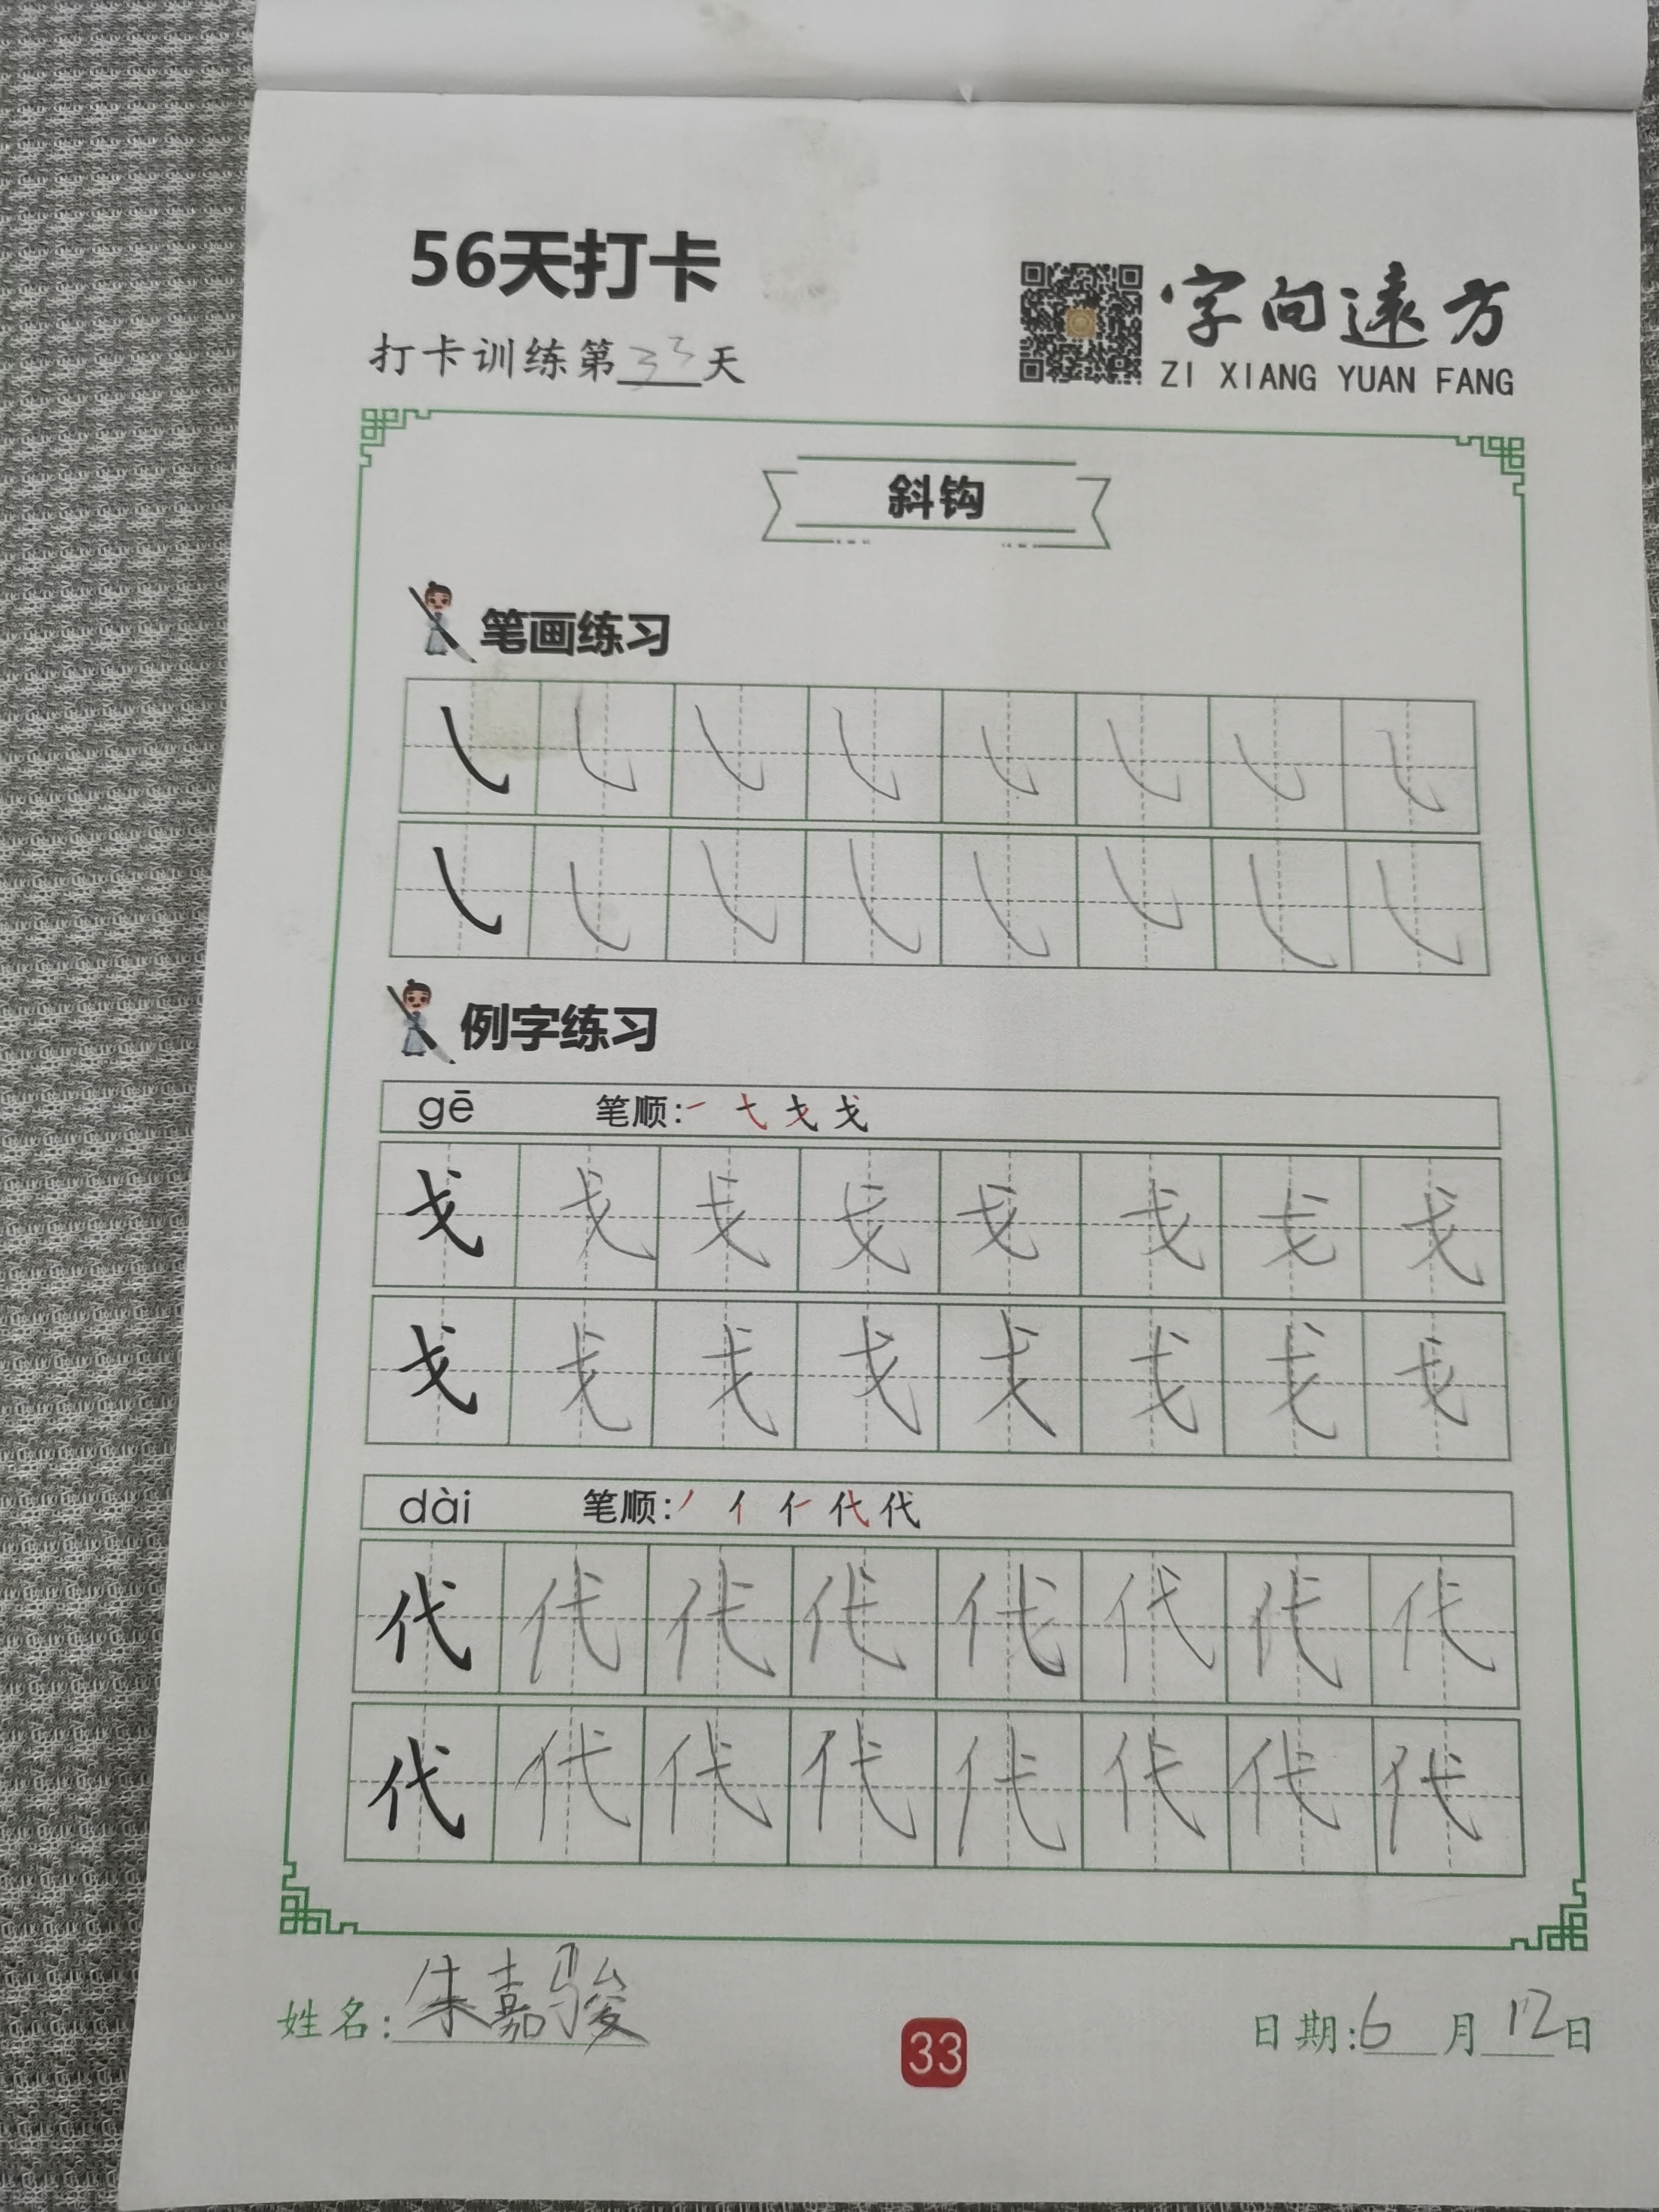 56天打卡
打卡训练第33天
字向遠方
ZI XIANG YUAN FANG
斜钩
笔画练习
㇂ ㇂ ㇂ ㇂ ㇂ ㇂ ㇂ ㇂
㇂ ㇂ ㇂ ㇂ ㇂ ㇂ ㇂ ㇂
例字练习
gē 笔顺: 一 弋 戈 戈
戈 戈 戈 戈 戈 戈 戈 戈
戈 戈 戈 戈 戈 戈 戈 戈
dài 笔顺: 丿 亻 仁 代 代
代 代 代 代 代 代 代 代
代 代 代 代 代 代 代 代
姓名: 朱嘉骏
33
日期: 6 月 12 日